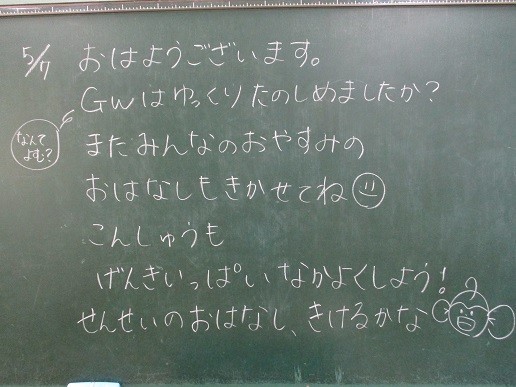 5/7
おはようございます。
GWはゆっくりたのしめましたか?
なんて
よむ?
またみんなのおやすみの
おはなしもきかせてね
こんしゅうも
げんきいっぱいなかよくしよう!
せんせいのおはなし、きけるかな